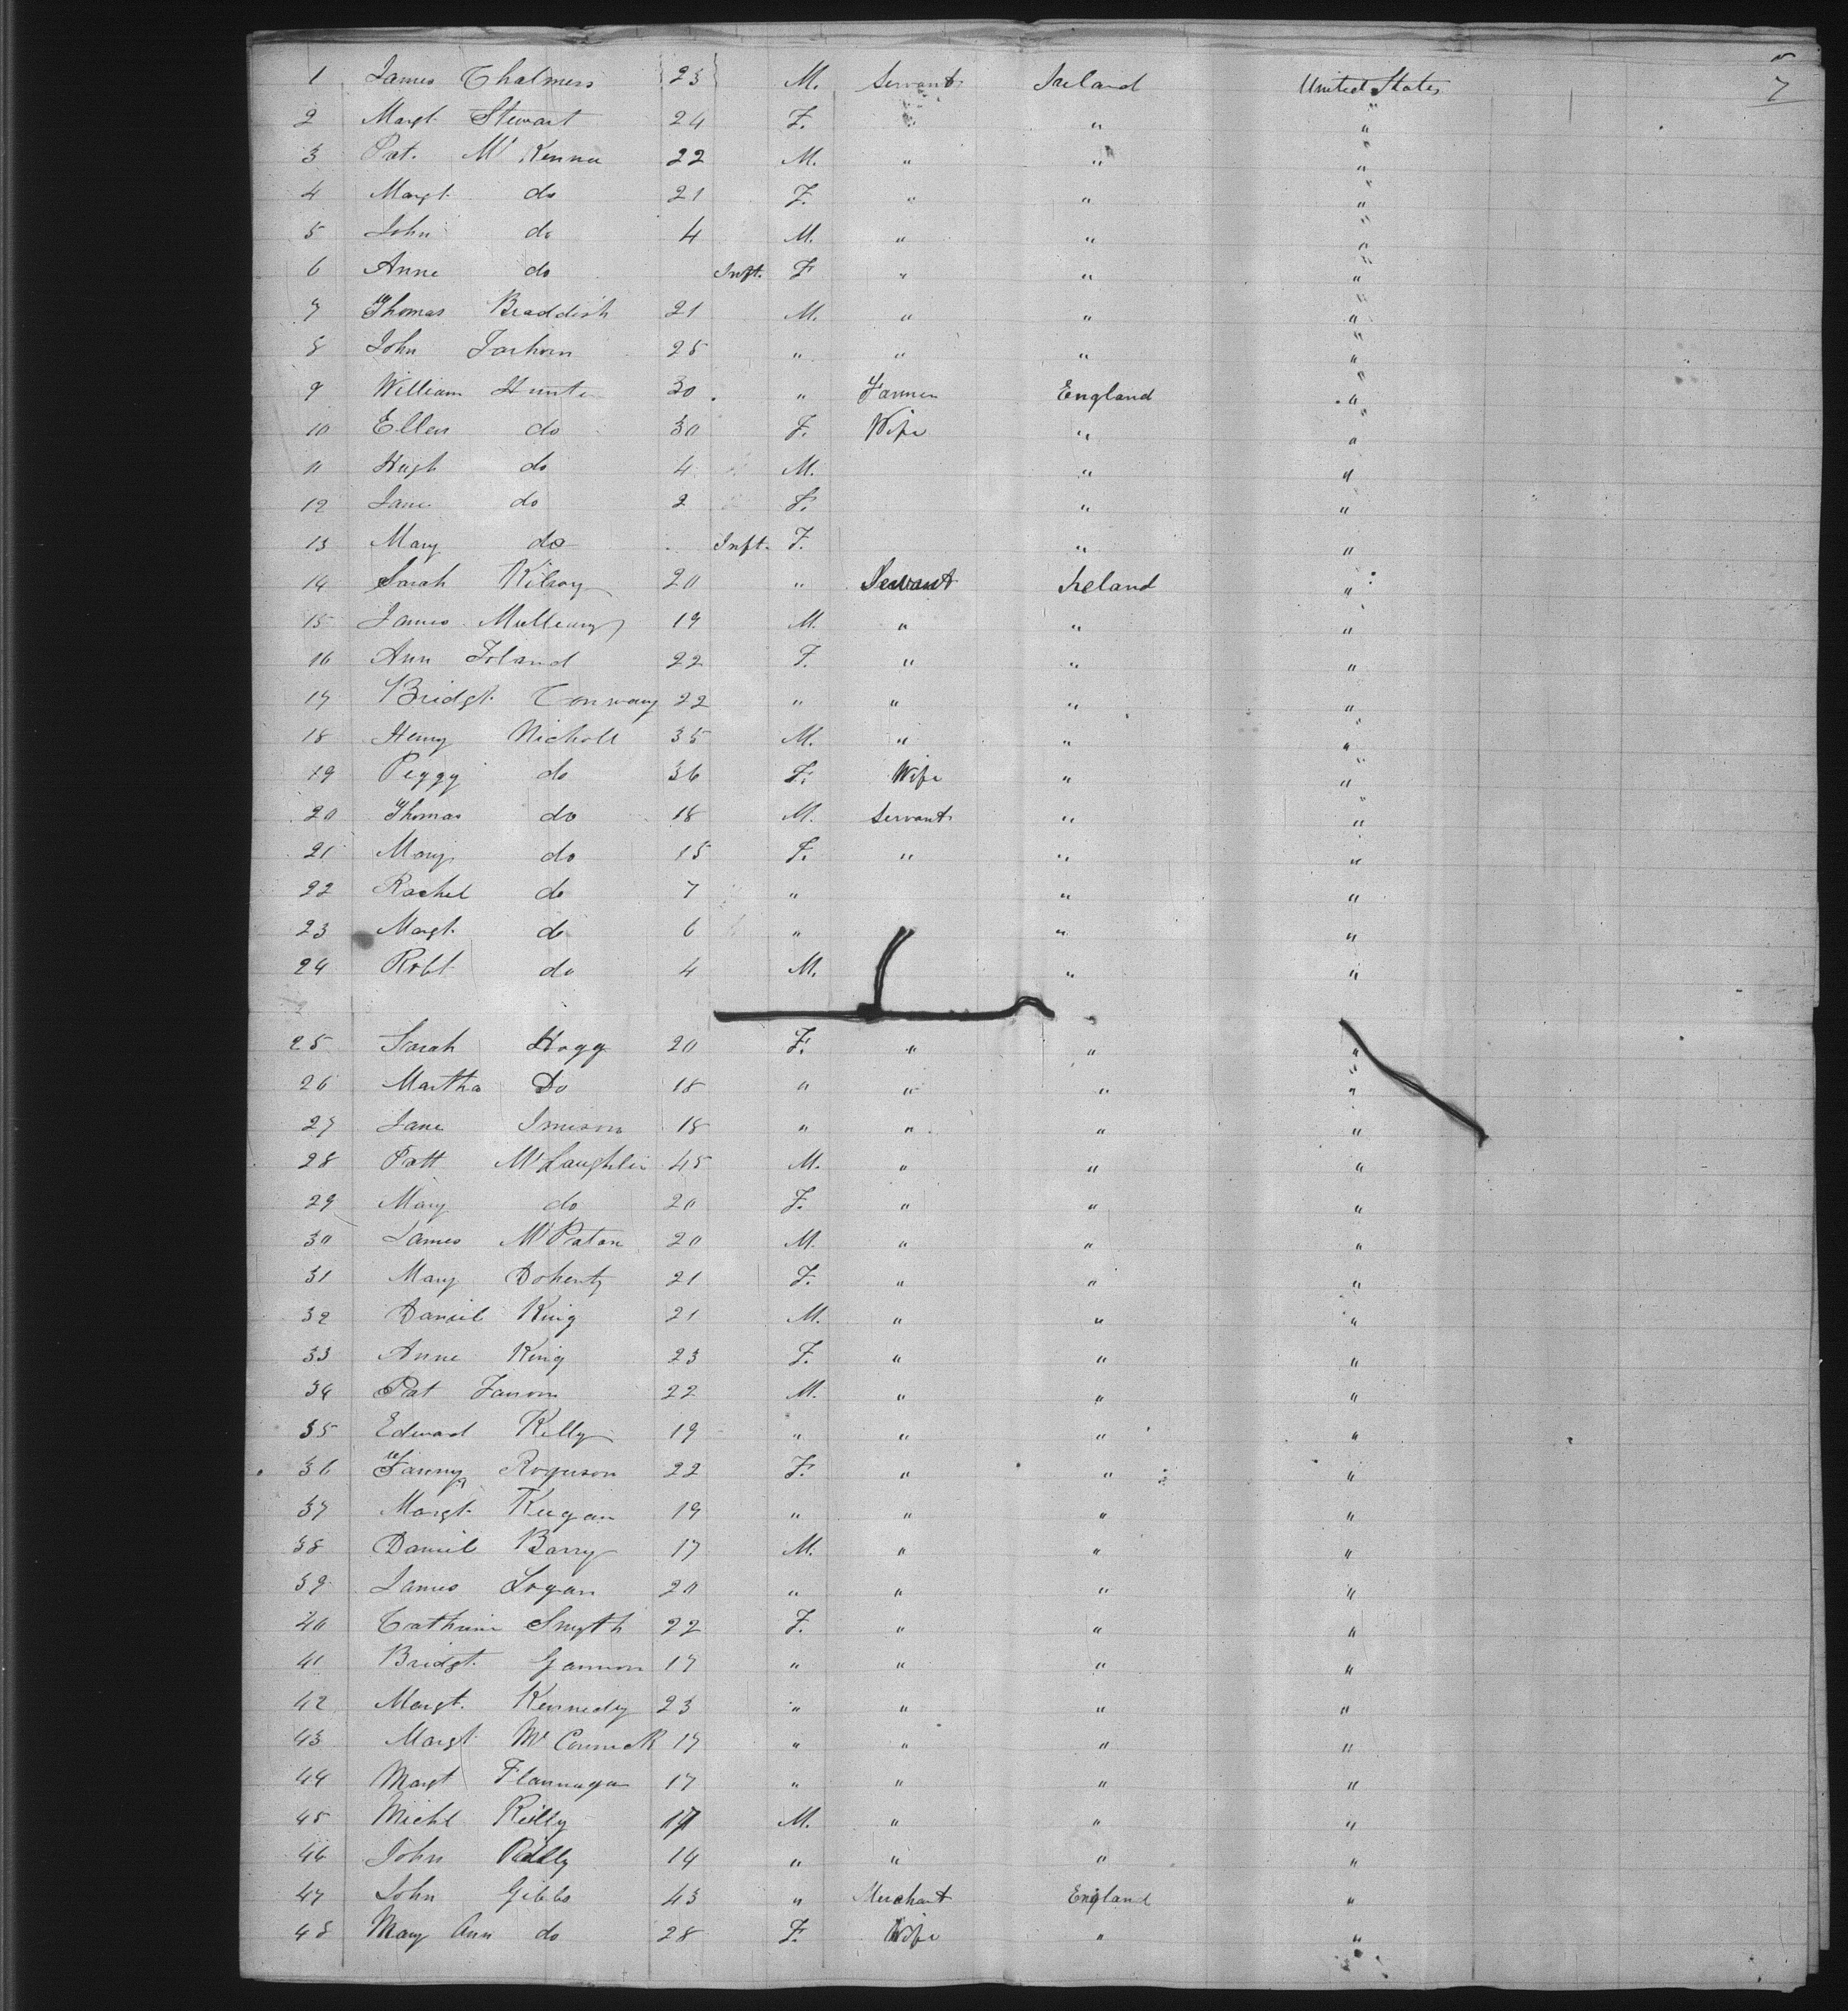 7
1 James Chalmers 23 M. Servant Ireland United States
2 Margt. Stewart 24 F. " " "
3 Pat. McKenna 22 M. " " "
4 Margt. do 21 F. " " "
5 John do 4 M. " " "
6 Anne do Inft. F " " "
7 Thomas Braddish 21 M. " " "
8 John 25 " " " "
9 William Hunter 30 " Farmer England "
10 Ellen do 30 F. Wife " "
11 Hugh do 4 M. " "
12 Jane do 2 F. " "
13 Mary do Inft. F. " "
14 Sarah Kilroy 20 " Servant Ireland "
15 James 19 M. " " "
16 Ann Toland 22 F. " " "
17 Bridgt. Conway 22 " " " "
18 Henry Nicholl 35 M. " " "
19 Peggy do 36 F. Wife " "
20 Thomas do 18 M. Servant " "
21 Mary do 15 F. " " "
22 Rachel do 7 " " "
23 Margt. do 6 " " "
24 Robt do 4 M. " "
25 Sarah Hogg 20 F. " " "
26 Martha Do 18 " " " "
27 Jane Imison 18 " " " "
28 Patt McLaughlin 45 M. " " "
29 Mary do 20 F. " " "
30 James McPaton 20 M. " " "
31 Mary Doherty 21 F. " " "
32 Daniel King 21 M. " " "
33 Anne King 23 F. " " "
34 Pat 22 M. " " "
35 Edward Kelly 19 " " " "
36 Fanny Rogerson 22 F. " " "
37 Margt. Keegan 19 " " " "
38 Daniel Barry 17 M. " " "
39 James Logan 20 " " " "
40 Catherine Smyth 22 F. " " "
41 Bridgt. Gannon 17 " " " "
42 Margt. Kennedy 23 " " " "
43 Margt McCormick 17 " " " "
44 Margt Flannagan 17 " " " "
45 Michl Reilly 17 M. " " "
46 John Reilly 14 " " " "
47 John Gibbs 43 " Merchant England "
48 Mary Ann do 28 F. Wife " "